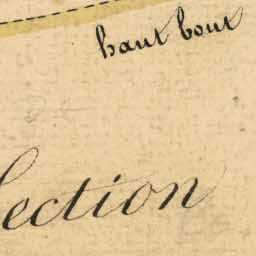 haut bout
Section